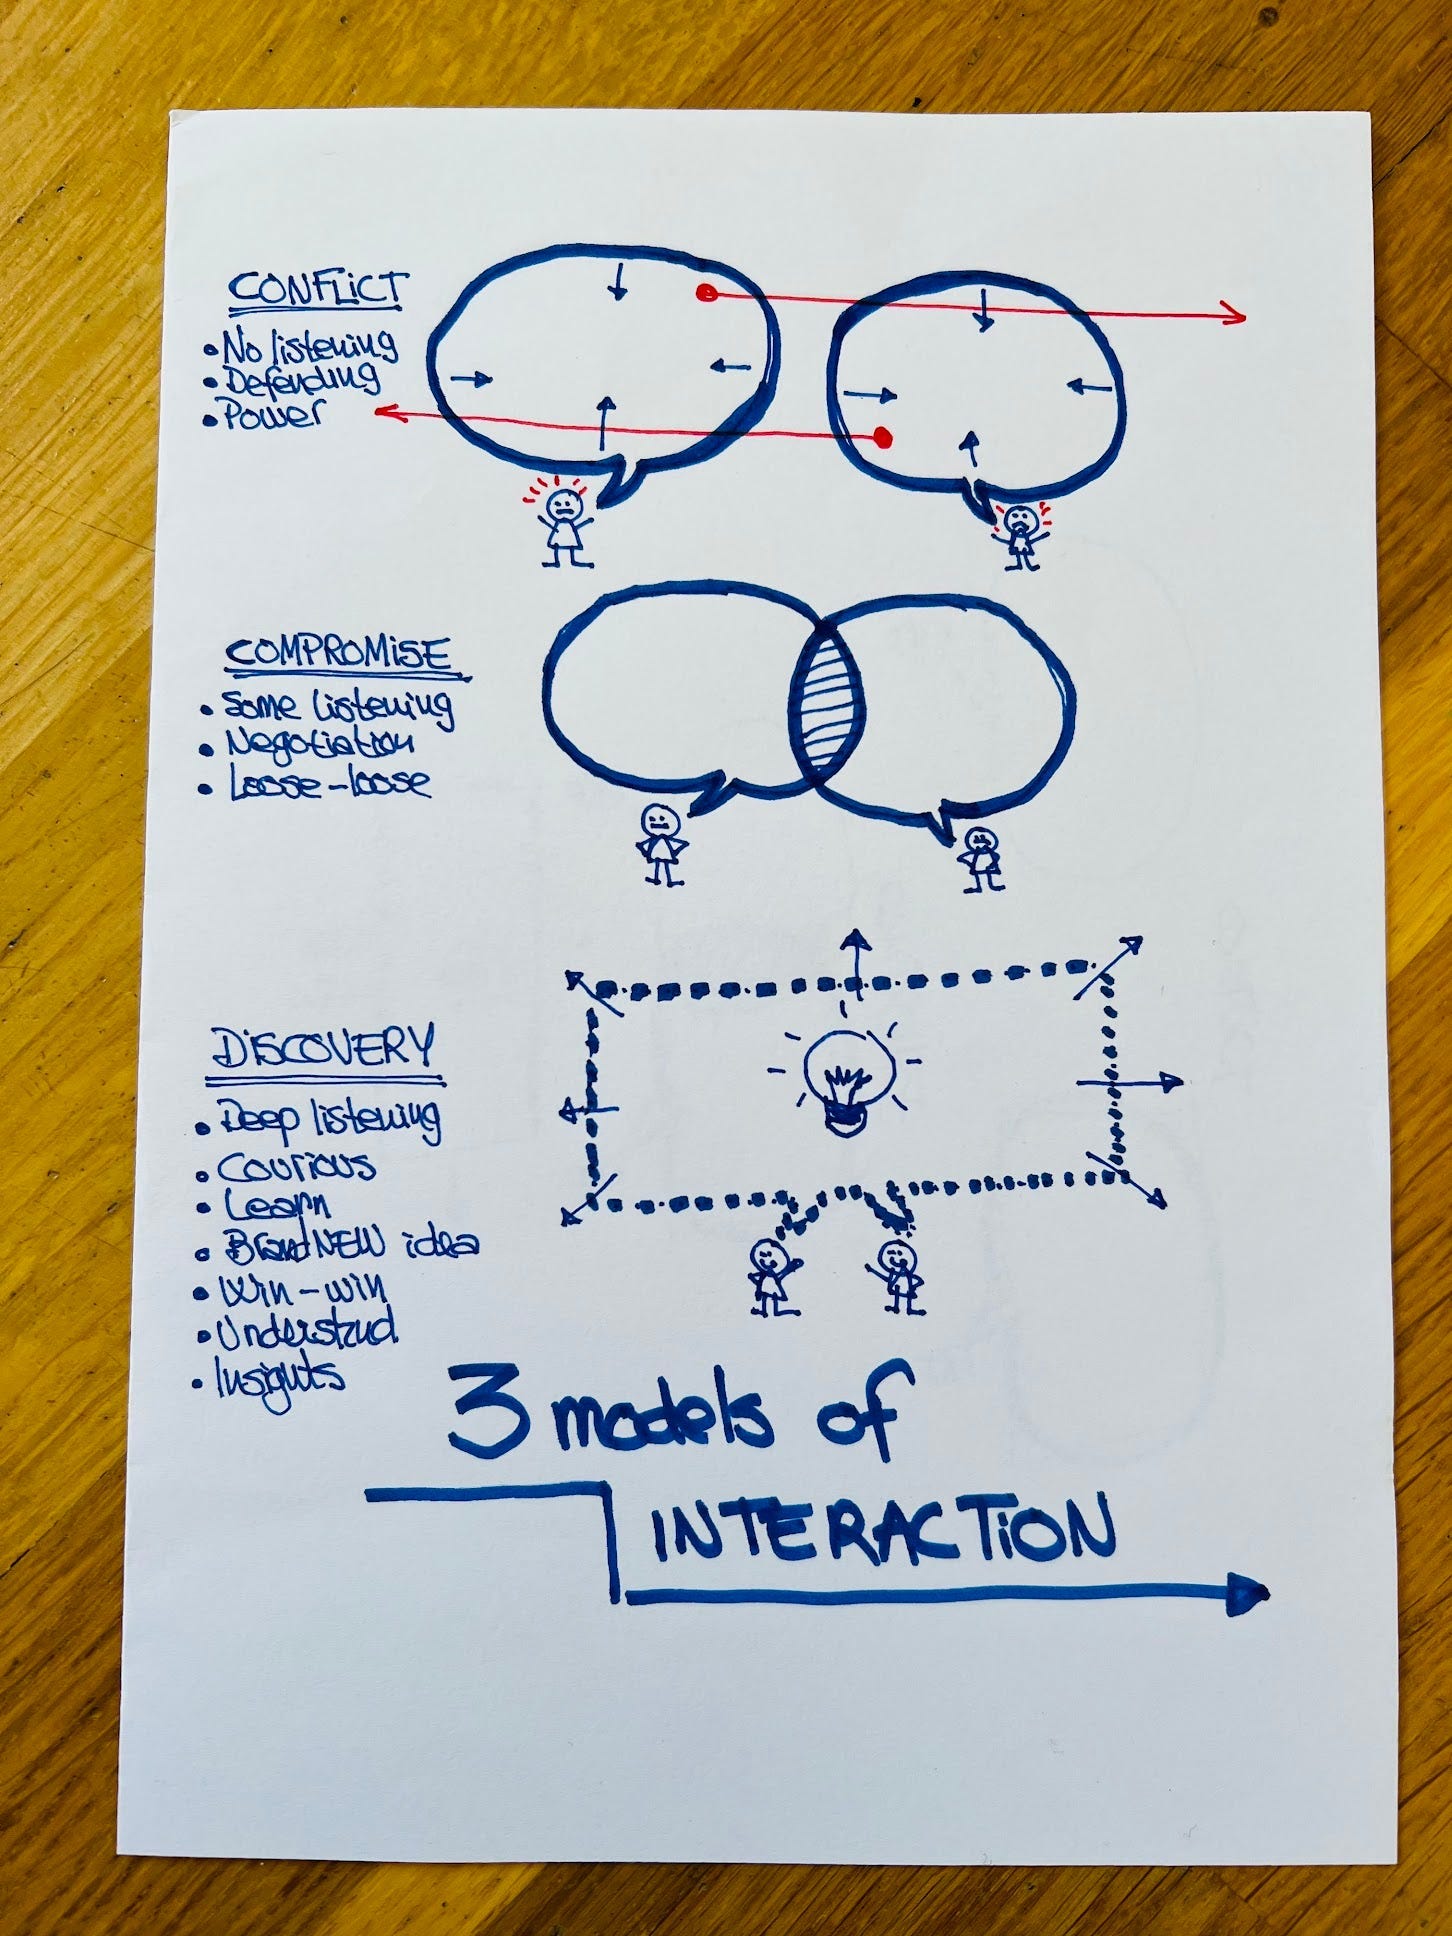 CONFLiCT
• No listening
• Defending
• Power
COMPROMiSE
• Some listening
• Negotiation
• Loose-loose
DiSCOVERY
• Deep listening
• Courious
• Learn
• Brand NEW idea
• Win-win
• Understand
• Insights
3 models of
INTERACTiON